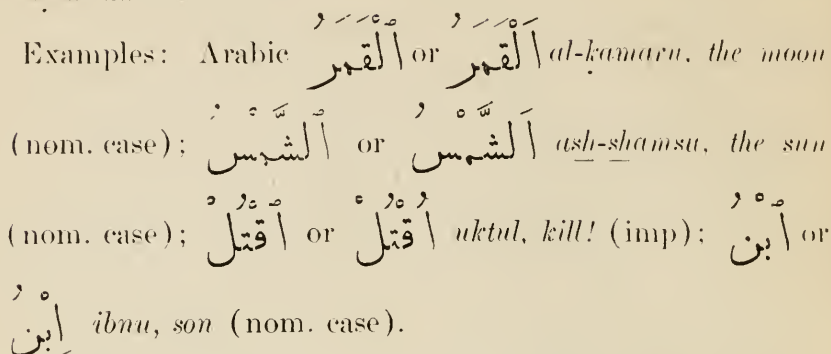 Examples: Arabic ٱلْقَمَرُ or اَلْقَمَرُ al-ḳamaru, the moon
(nom. case); ٱلشَّمْسُ or اَلشَّمْسُ ash-shamsu, the sun
(nom. case); ٱقْتُلْ or اُقْتُلْ uktul, kill! (imp); ٱبْنُ or
اِبْنُ ibnu, son (nom. case).